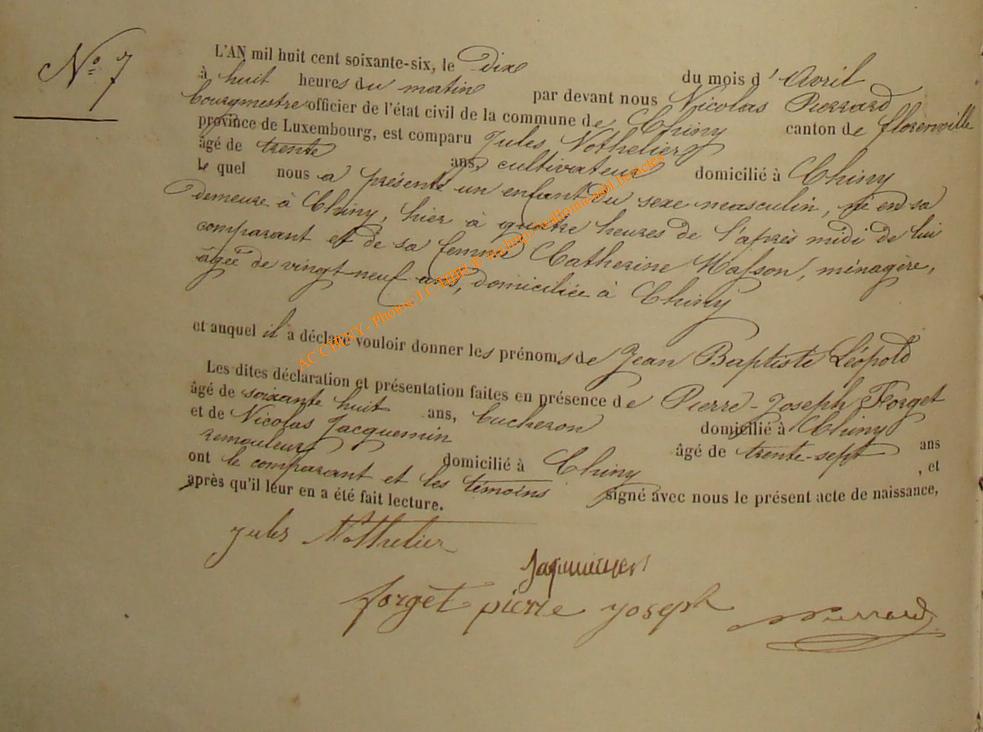 N° 7
L'AN mil huit cent soixante-six, le Dix du mois d' Avril
à huit heures du matin par devant nous Nicolas Pierrard
bourgmestre officier de l'état civil de la commune de Chiny canton de florenville
province de Luxembourg, est comparu Jules Nothelier
âgé de trente ans, cultivateur domicilié à Chiny
le quel nous a présenté un enfant du sexe masculin, né en sa
demeure à Chiny, hier à quatre heures de l'après midi de lui
comparant et de sa femme Catherine Masson, ménagère,
âgée de vingt neuf ans, domiciliée à Chiny
et auquel il a déclaré vouloir donner les prénoms de Jean Baptiste Léopold
Les dites déclaration et présentation faites en présence de Pierre-Joseph Forget
âgé de soixante huit ans, bucheron domicilié à Chiny
et de Nicolas Jacquemin âgé de trente-sept ans
remouleur domicilié à Chiny , et
ont le comparant et les témoins signé avec nous le présent acte de naissance,
après qu'il leur en a été fait lecture.
Jules Nothelier
forget pierre joseph